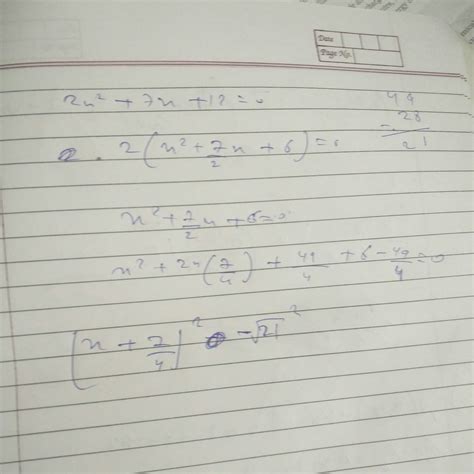 Date
Page No.
2x² + 7x + 12 = 0
2(x² + 7/2 x + 6) = 0
49
- 28
21
x² + 7/2 x + 6 = 0
x² + 2x(7/4) + 49/4 + 6 - 49/4 = 0
(x + 7/4)² - √21²